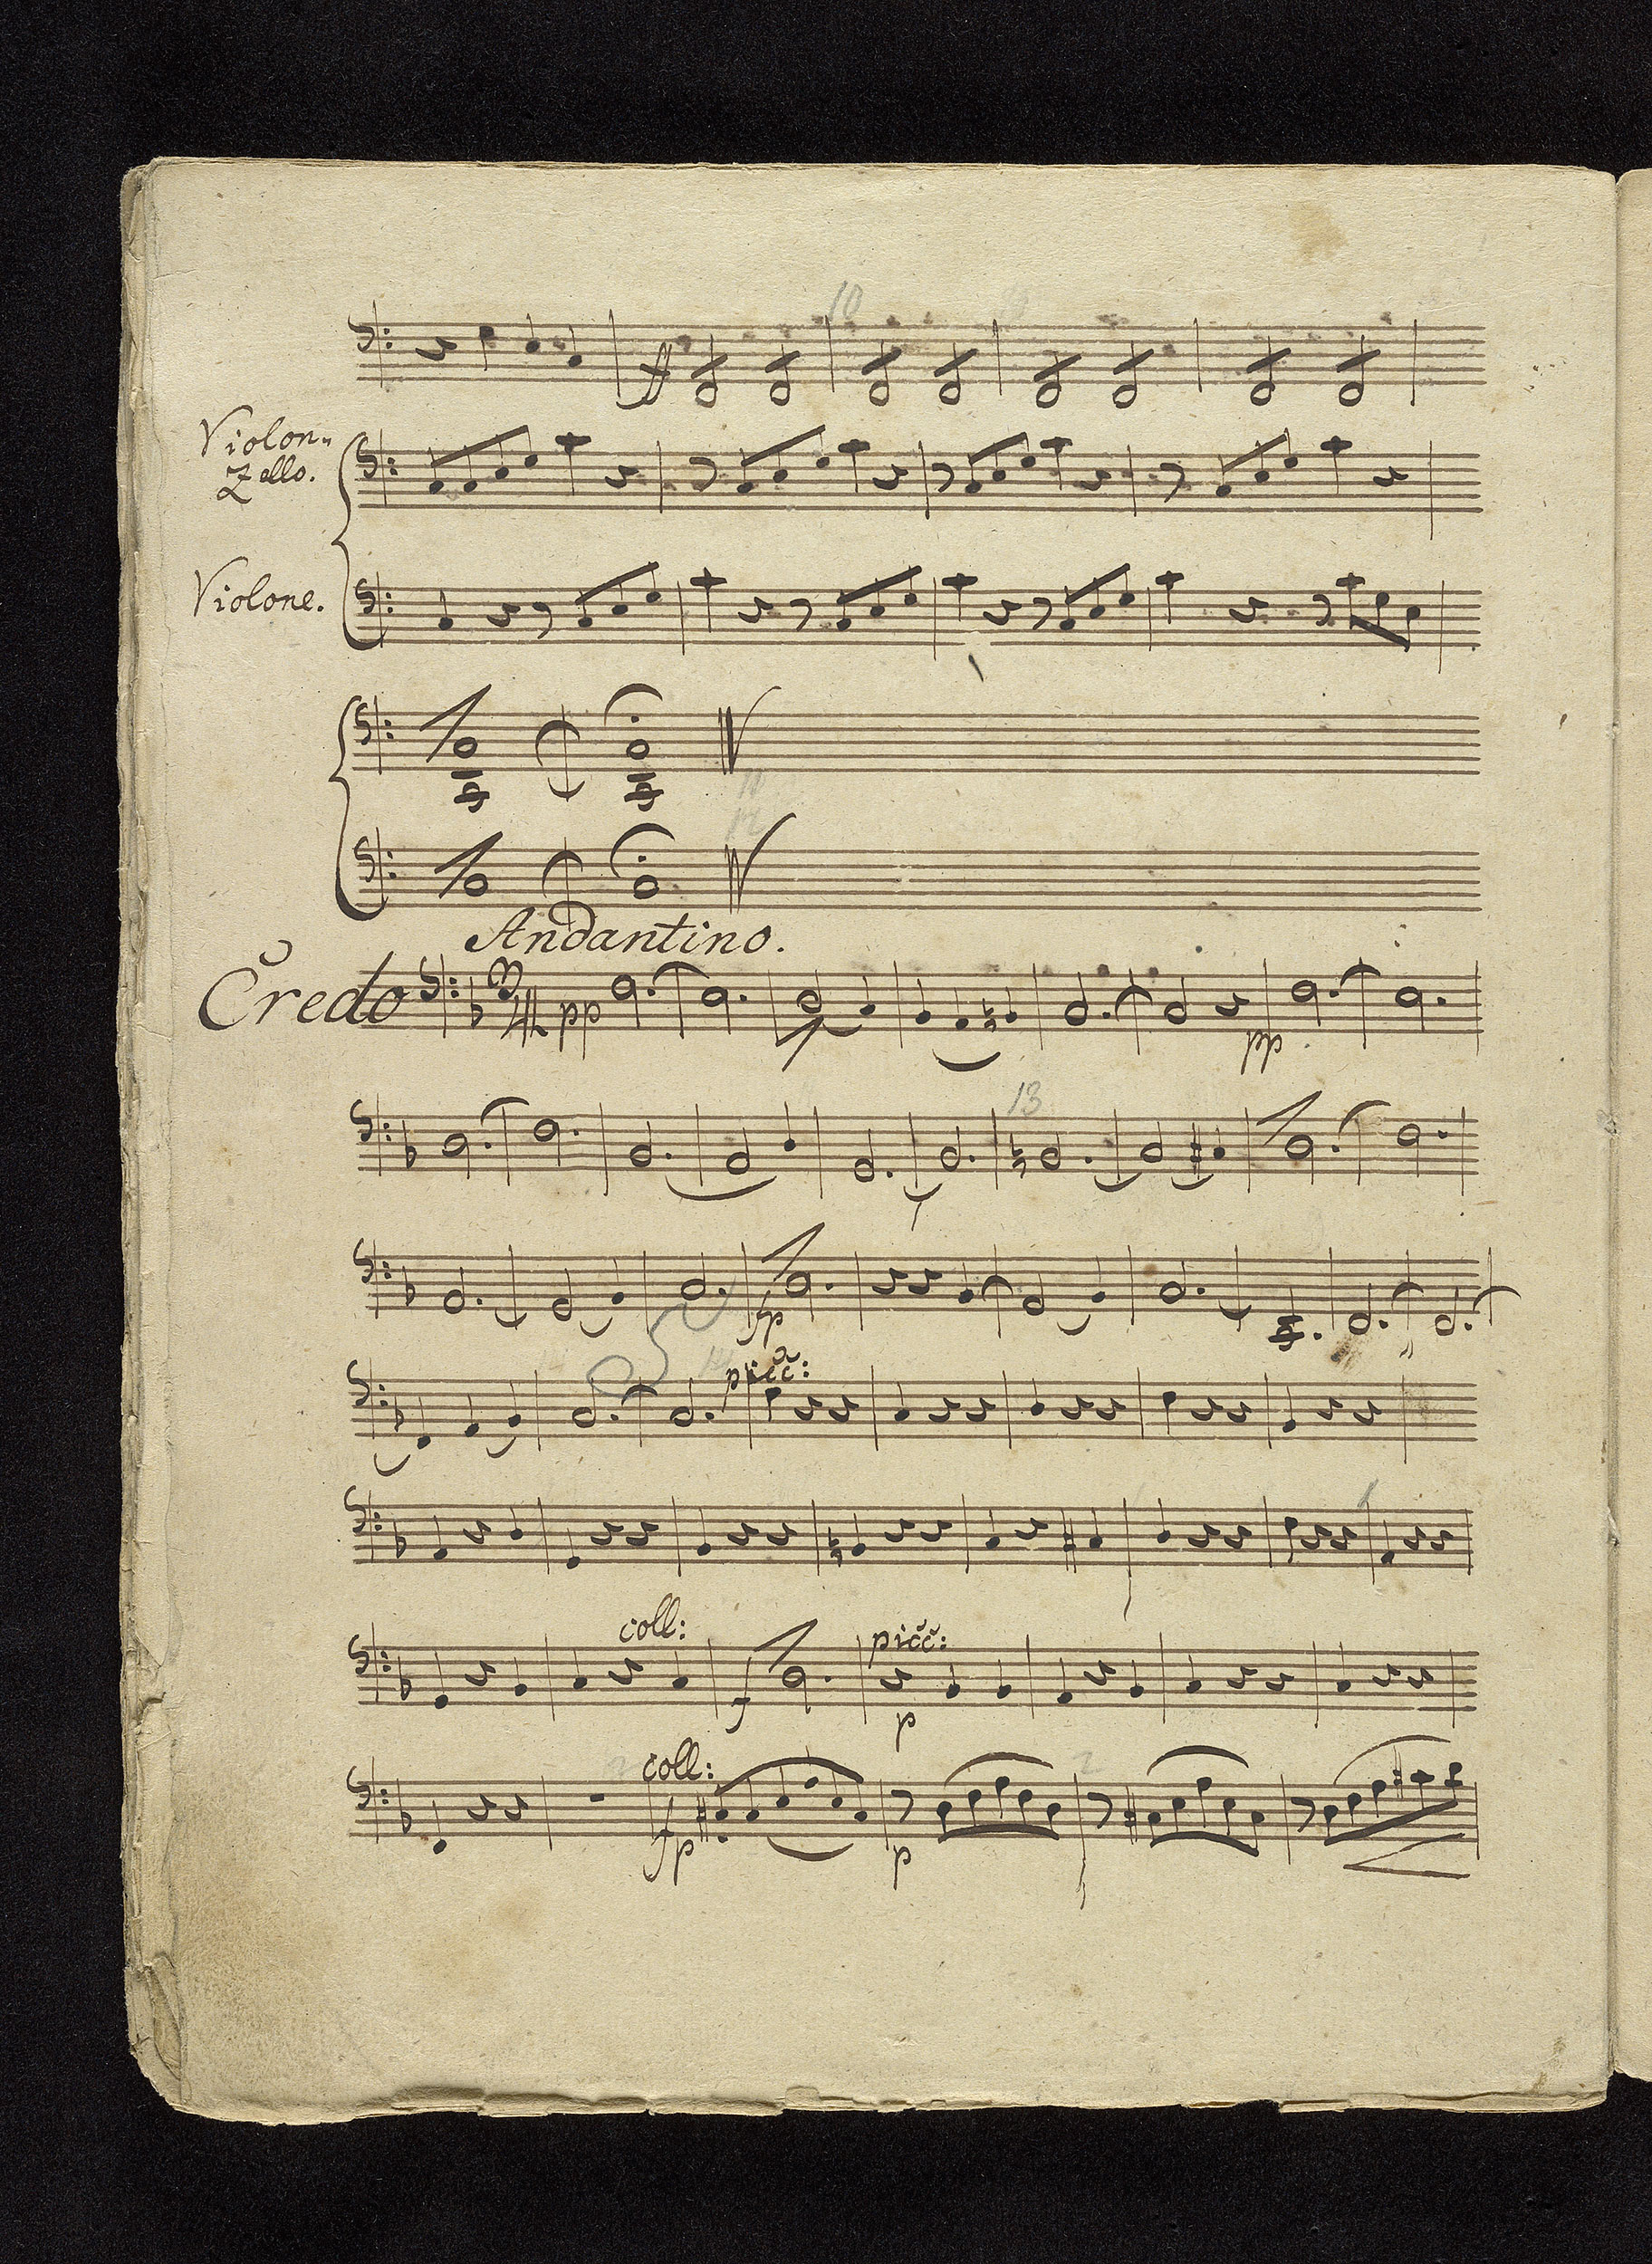 10
ff
Violon„
Zello.
Violone.
Andantino.
Credo
3/4
pp
pp
13
fp
picc:
coll:
picc:
f
p
coll:
fp
p